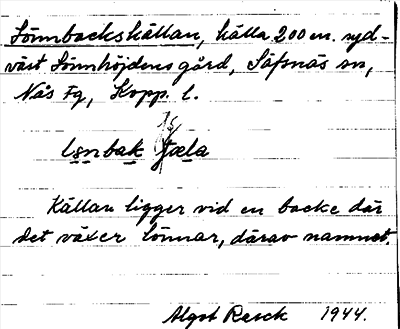 Lönnbackskällan, källa 200 m. syd-
väst Lönnhöjdens gård, Säfsnäs sn,
Nås Fg, Kopp. l.
lsnbak
Källan ligger vid en backe där
det växer lönnar, därav namnet.
Algot Resck 1944.